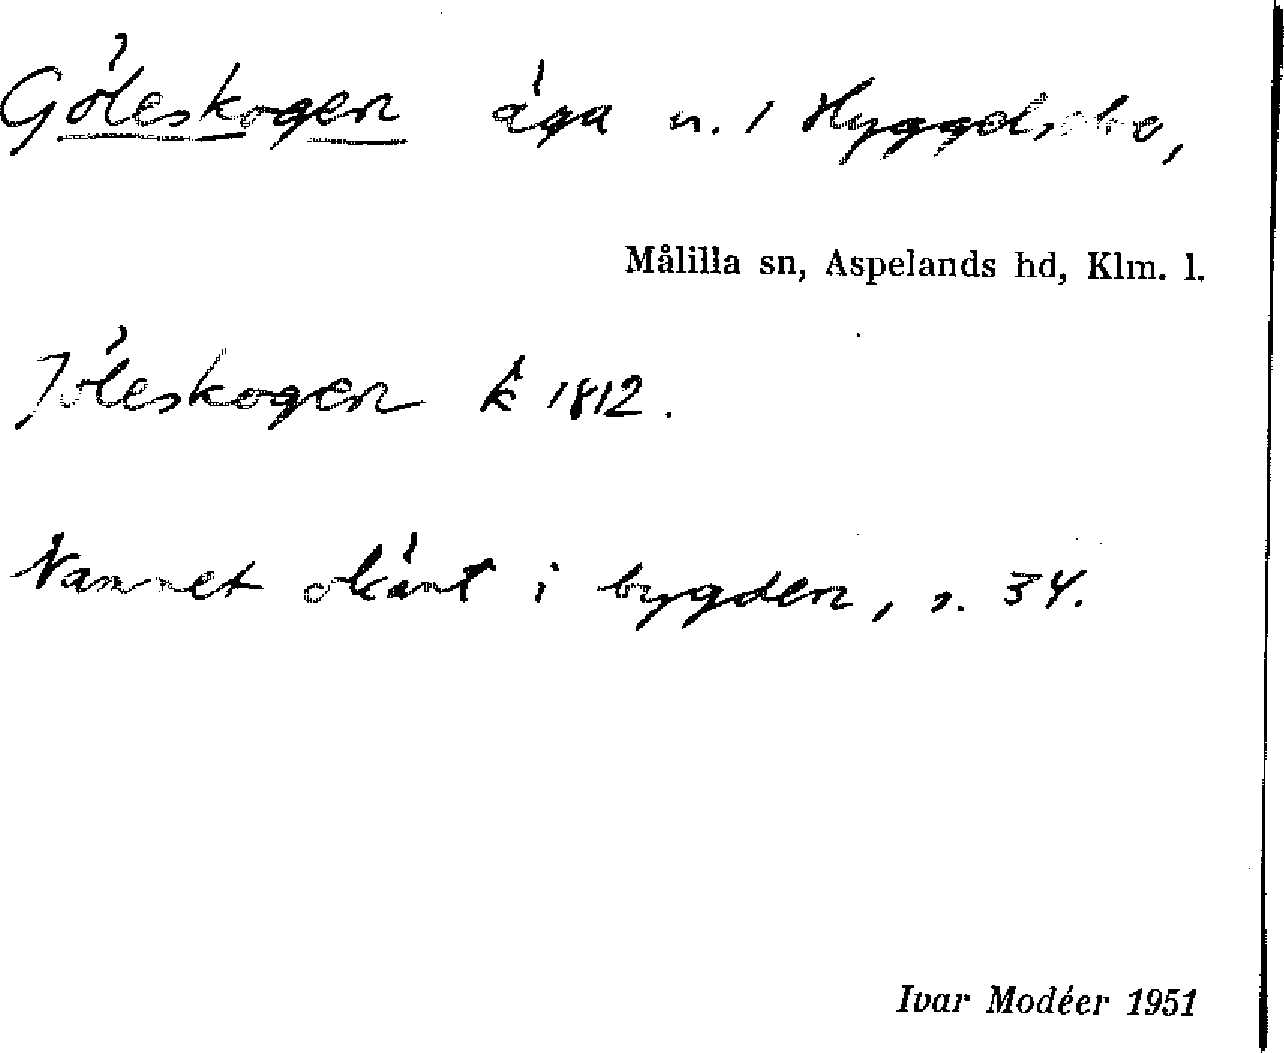 Göleskogen äga
Målilla sn, Aspelands hd, Klm. l.
Jöleskogen k 1812.
Namnet okänt i bygden, s. 34.
Ivar Modéer 1951